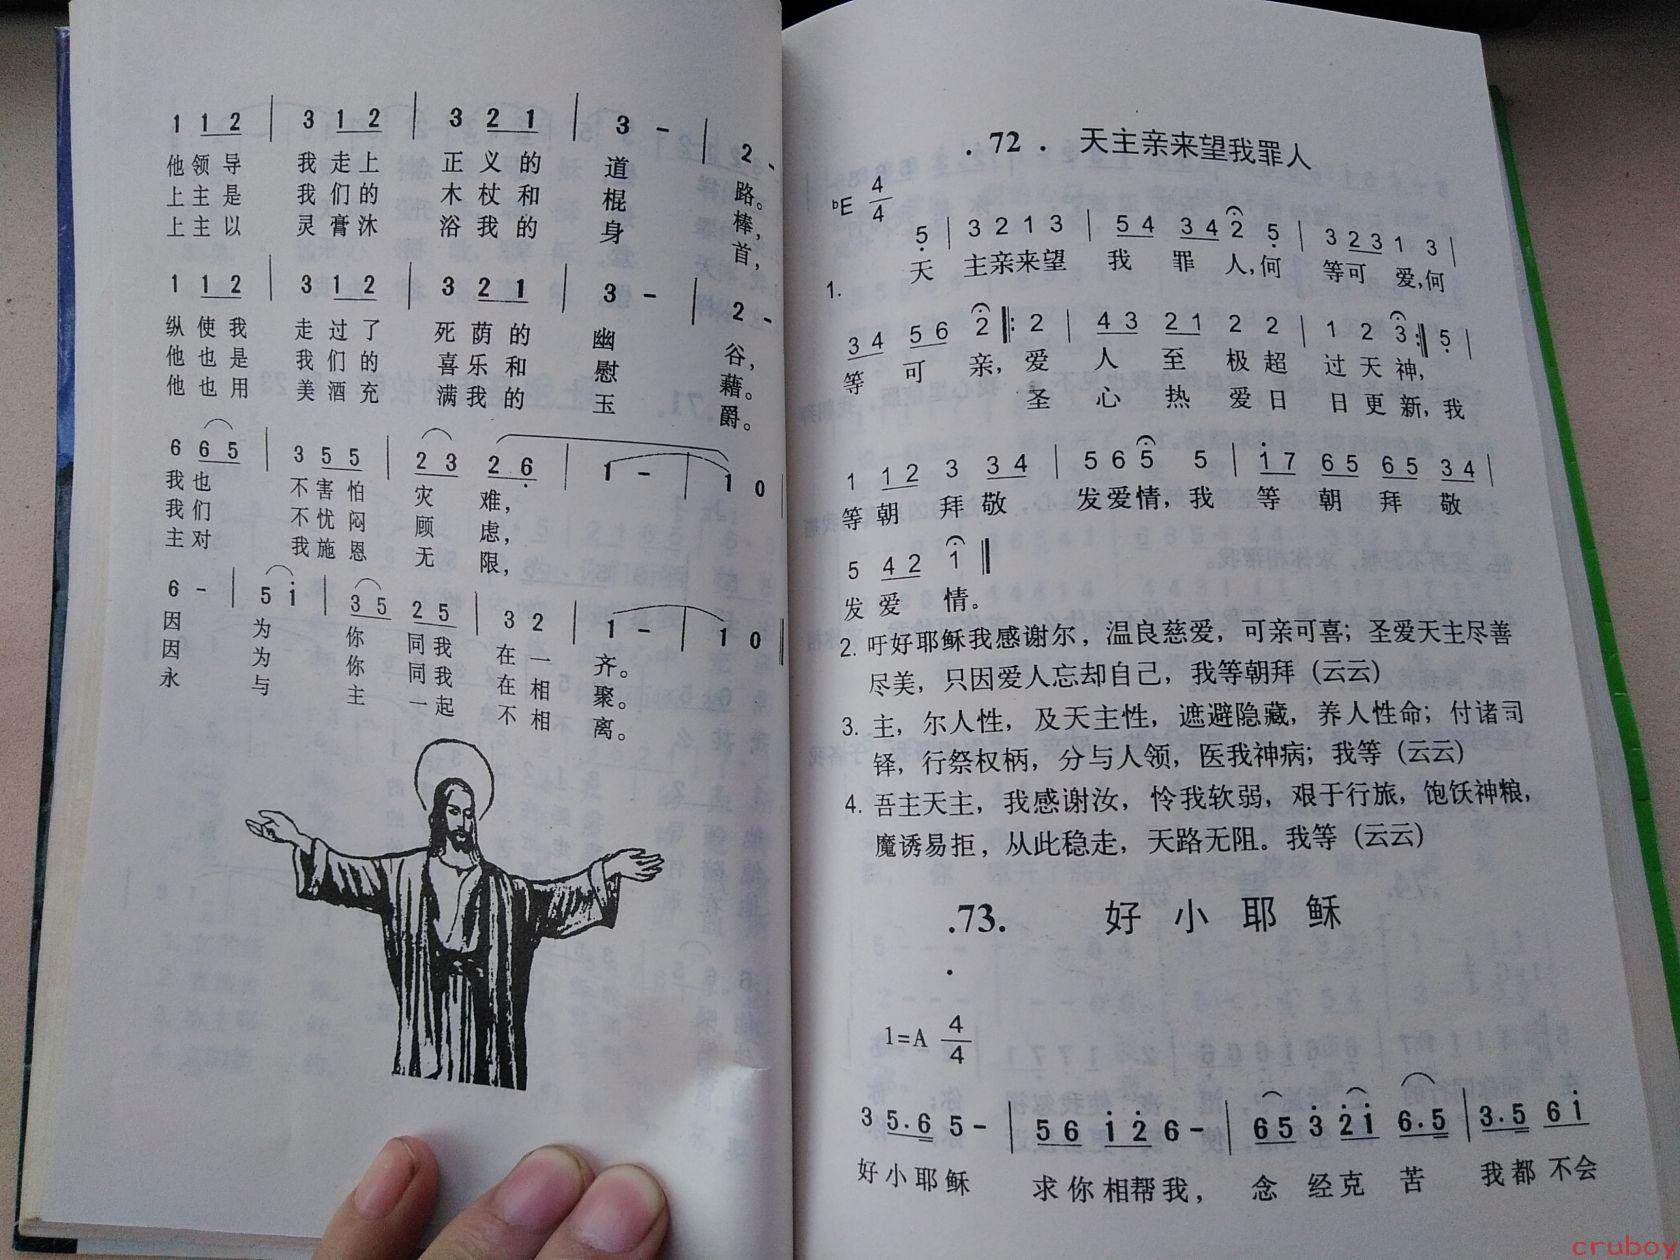 1 1 2 | 3 1 2 | 3 2 1 | 3 - | 2 -
他领导 我走上 正义的 道 路。
上主是 我们的 木杖和 棍 棒，
上主以 灵膏沐 浴我的 身 首，
1 1 2 | 3 1 2 | 3 2 1 | 3 - | 2 -
纵使我 走过了 死荫的 幽 谷，
他也是 我们的 喜乐和 慰 藉。
他也用 美酒充 满我的 玉 爵。
6 6 5 | 3 5 5 | 2 3 2 6 | 1 - | 1 0
我也 不害怕 灾 难，
我们 不忧闷 顾 虑，
主对 我施恩 无 限，
6 - | 5 i | 3 5 2 5 | 3 2 | 1 - | 1 0
因 为 你 同我 在一 齐。
因 为 你 同我 在相 聚。
永 与 主 一起 不相 离。
.72. 天主亲来望我罪人
bE 4/4
5 | 3 2 1 3 | 5 4 3 4 2 5 | 3 2 3 1 3 |
1. 天 主亲来望 我 罪 人,何 等可 爱,何
3 4 5 6 2 ‖: 2 | 4 3 2 1 2 2 | 1 2 3 :‖ 5 |
等 可 亲, 爱 人 至 极 超 过 天 神,
圣 心 热 爱 日 日 更 新, 我
1 1 2 3 3 4 | 5 6 5 5 | i 7 6 5 6 5 3 4 |
等 朝 拜 敬 发爱情, 我 等 朝 拜 敬
5 4 2 1 ‖
发 爱 情。
2. 吁好耶稣我感谢尔，温良慈爱，可亲可喜；圣爱天主尽善
尽美，只因爱人忘却自己，我等朝拜（云云）
3. 主，尔人性，及天主性，遮避隐藏，养人性命；付诸司
铎，行祭权柄，分与人领，医我神病；我等（云云）
4. 吾主天主，我感谢汝，怜我软弱，艰于行旅，饱饫神粮，
魔诱易拒，从此稳走，天路无阻。我等（云云）
.73. 好小耶稣
1=A 4/4
3 5.6 5 - | 5 6 i 2 6 - | 6 5 3 2 i 6.5 | 3.5 6 i
好小耶稣 求你相帮我， 念 经克 苦 我都不会
cruboy